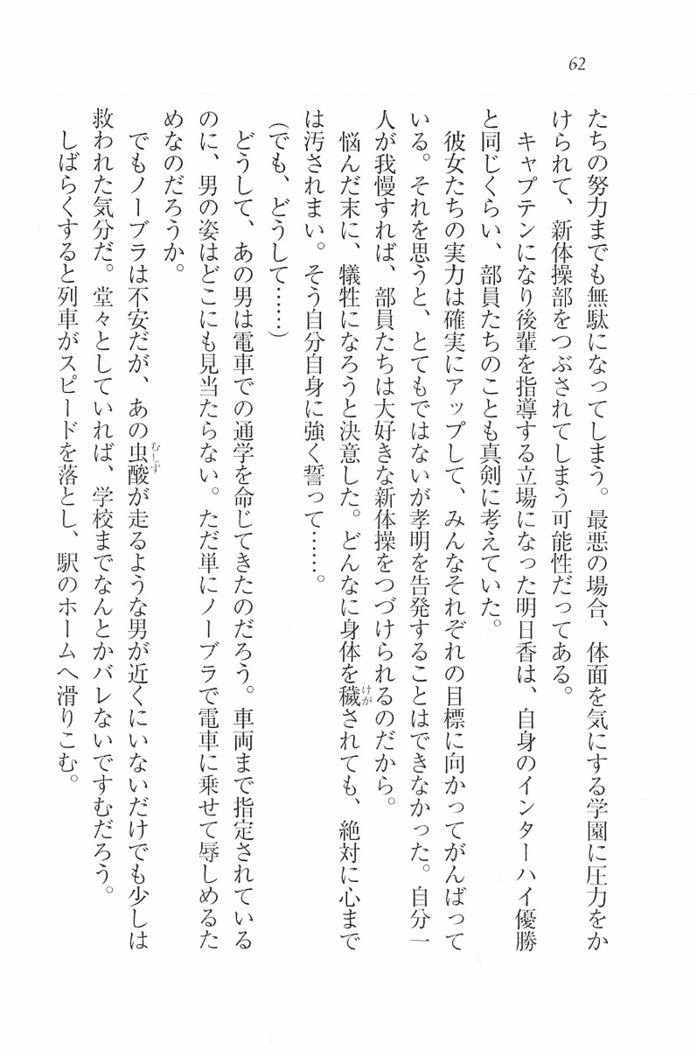 62
たちの努力までも無駄になってしまう。最悪の場合、体面を気にする学園に圧力をか
けられて、新体操部をつぶされてしまう可能性だってある。
キャプテンになり後輩を指導する立場になった明日香は、自身のインターハイ優勝
と同じくらい、部員たちのことも真剣に考えていた。
彼女たちの実力は確実にアップして、みんなそれぞれの目標に向かってがんばって
いる。それを思うと、とてもではないが孝明を告発することはできなかった。自分一
人が我慢すれば、部員たちは大好きな新体操をつづけられるのだから。
悩んだ末に、犠牲になろうと決意した。どんなに身体を穢されても、絶対に心まで
は汚されまい。そう自分自身に強く誓って……。
(でも、どうして……)
どうして、あの男は電車での通学を命じてきたのだろう。車両まで指定されている
のに、男の姿はどこにも見当たらない。ただ単にノーブラで電車に乗せて辱しめるた
めなのだろうか。
でもノーブラは不安だが、あの虫酸が走るような男が近くにいないだけでも少しは
救われた気分だ。堂々としていれば、学校までなんとかバレないですむだろう。
しばらくすると列車がスピードを落とし、駅のホームへ滑りこむ。